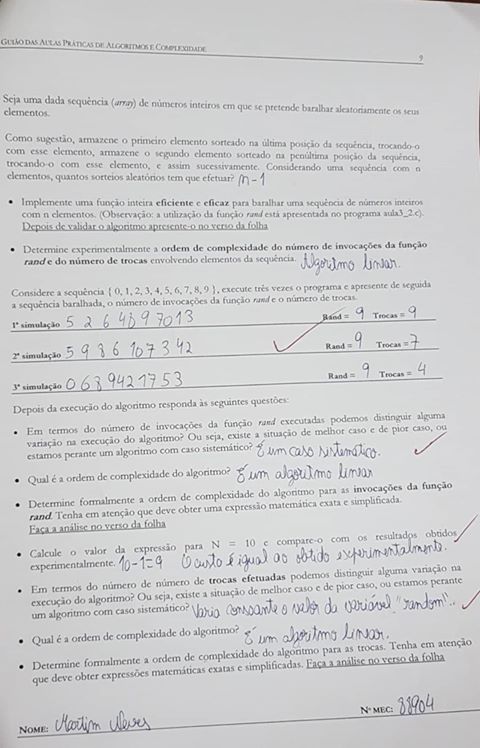 GUIÃO DAS AULAS PRÁTICAS DE ALGORITMOS E COMPLEXIDADE
9
Seja uma dada sequência (array) de números inteiros em que se pretende baralhar aleatoriamente os seus
elementos.
Como sugestão, armazene o primeiro elemento sorteado na última posição da sequência, trocando-o
com esse elemento, armazene o segundo elemento sorteado na penúltima posição da sequência,
trocando-o com esse elemento, e assim sucessivamente. Considerando uma sequência com n
elementos, quantos sorteios aleatórios tem que efetuar? n-1
• Implemente uma função inteira eficiente e eficaz para baralhar uma sequência de números inteiros
com n elementos. (Observação: a utilização da função rand está apresentada no programa aula3_2.c).
Depois de validar o algoritmo apresente-o no verso da folha
• Determine experimentalmente a ordem de complexidade do número de invocações da função
rand e do número de trocas envolvendo elementos da sequência. Algoritmo linear.
Considere a sequência { 0, 1, 2, 3, 4, 5, 6, 7, 8, 9 }, execute três vezes o programa e apresente de seguida
a sequência baralhada, o número de invocações da função rand e o número de trocas.
1ª simulação 5 2 6 4 8 9 7 0 1 3 Rand = 9 Trocas = 9
2ª simulação 5 9 8 6 1 0 7 3 4 2 Rand = 9 Trocas = 7
3ª simulação 0 6 8 9 4 2 1 7 5 3 Rand = 9 Trocas = 4
Depois da execução do algoritmo responda às seguintes questões:
• Em termos do número de invocações da função rand executadas podemos distinguir alguma
variação na execução do algoritmo? Ou seja, existe a situação de melhor caso e de pior caso, ou
estamos perante um algoritmo com caso sistemático? É um caso sistemático.
• Qual é a ordem de complexidade do algoritmo? É um algoritmo linear
• Determine formalmente a ordem de complexidade do algoritmo para as invocações da função
rand. Tenha em atenção que deve obter uma expressão matemática exata e simplificada.
Faça a análise no verso da folha
• Calcule o valor da expressão para N = 10 e compare-o com os resultados obtidos
experimentalmente. 10-1=9 O custo é igual ao obtido experimentalmente.
• Em termos do número de número de trocas efetuadas podemos distinguir alguma variação na
execução do algoritmo? Ou seja, existe a situação de melhor caso e de pior caso, ou estamos perante
um algoritmo com caso sistemático? Varia consoante o valor da variável "random".
• Qual é a ordem de complexidade do algoritmo? É um algoritmo linear.
• Determine formalmente a ordem de complexidade do algoritmo para as trocas. Tenha em atenção
que deve obter expressões matemáticas exatas e simplificadas. Faça a análise no verso da folha
NOME: Martim Neves Nº MEC: 88904